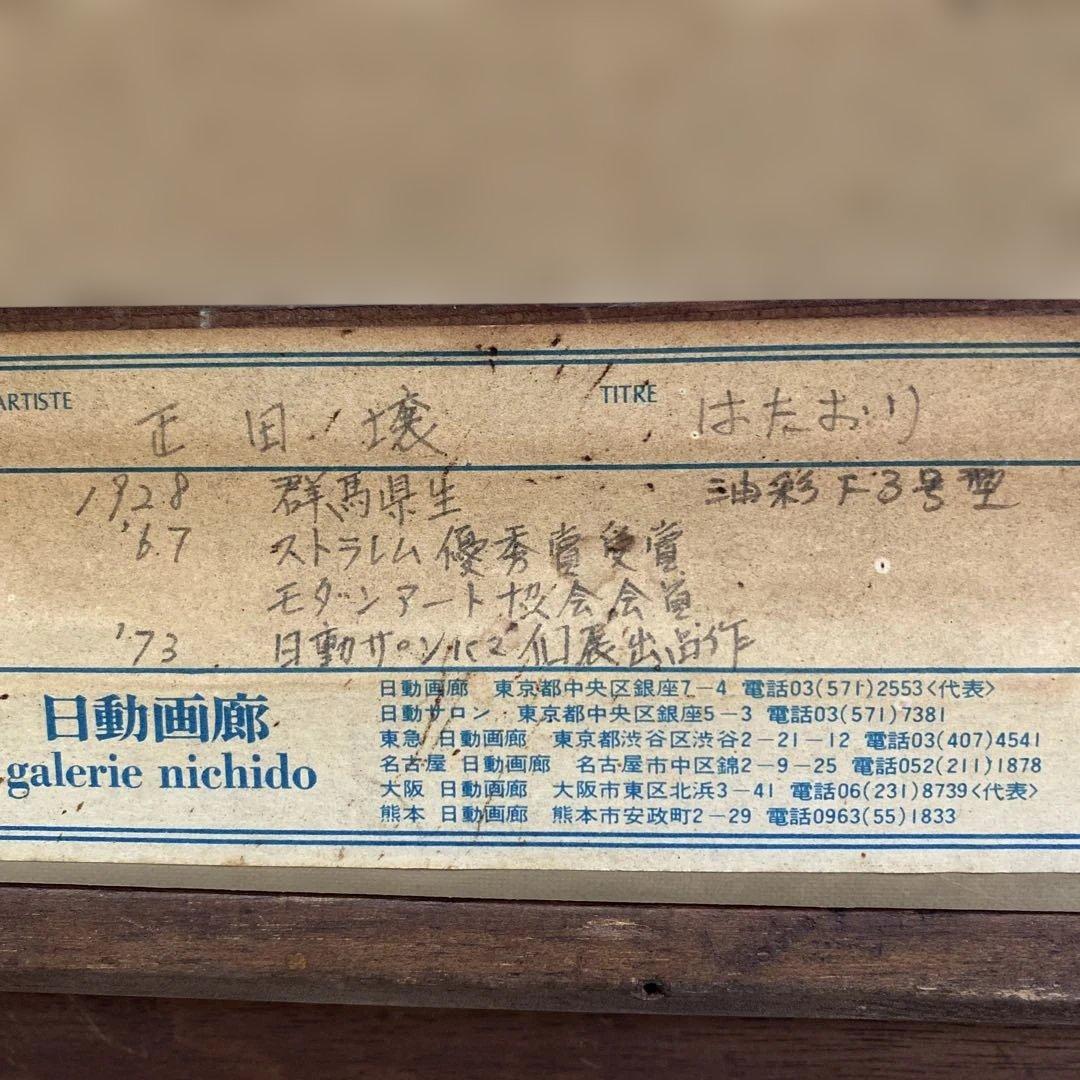 ARTISTE 正田 壤 TITRE はたおり
1928 群馬県生 油彩 F3号型
'67 ストラレム優秀賞受賞
モダンアート協会会員
'73 日動サロンにて個展出品作
日動画廊
galerie nichido
日動画廊 東京都中央区銀座7-4 電話03(571)2553<代表>
日動サロン 東京都中央区銀座5-3 電話03(571)7381
東急 日動画廊 東京都渋谷区渋谷2-21-12 電話03(407)4541
名古屋 日動画廊 名古屋市中区錦2-9-25 電話052(211)1878
大阪 日動画廊 大阪市東区北浜3-41 電話06(231)8739<代表>
熊本 日動画廊 熊本市安政町2-29 電話0963(55)1833